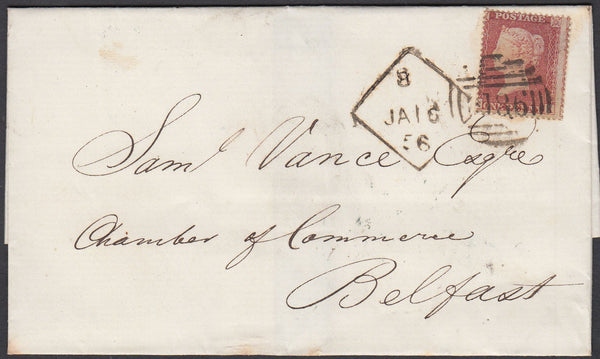 POSTAGE
8
JA 16
56
186
Saml Vance Esqre
Chamber of Commerce
Belfast